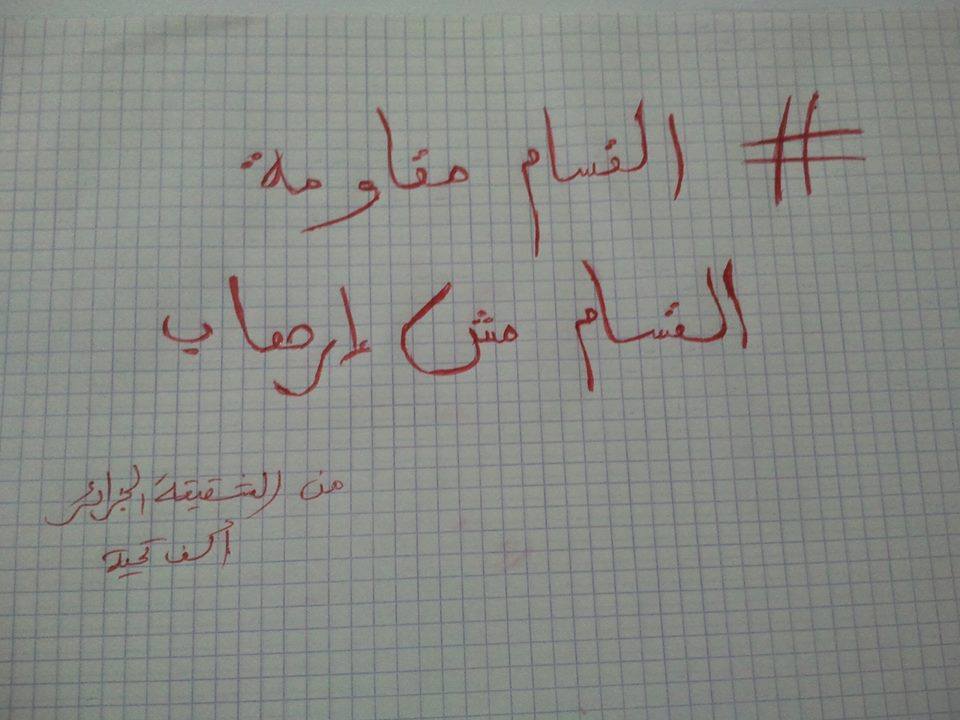 # القسام مقاومة
القسام مش إرهاب
من الشقيقة الجزائر
ألف تحية